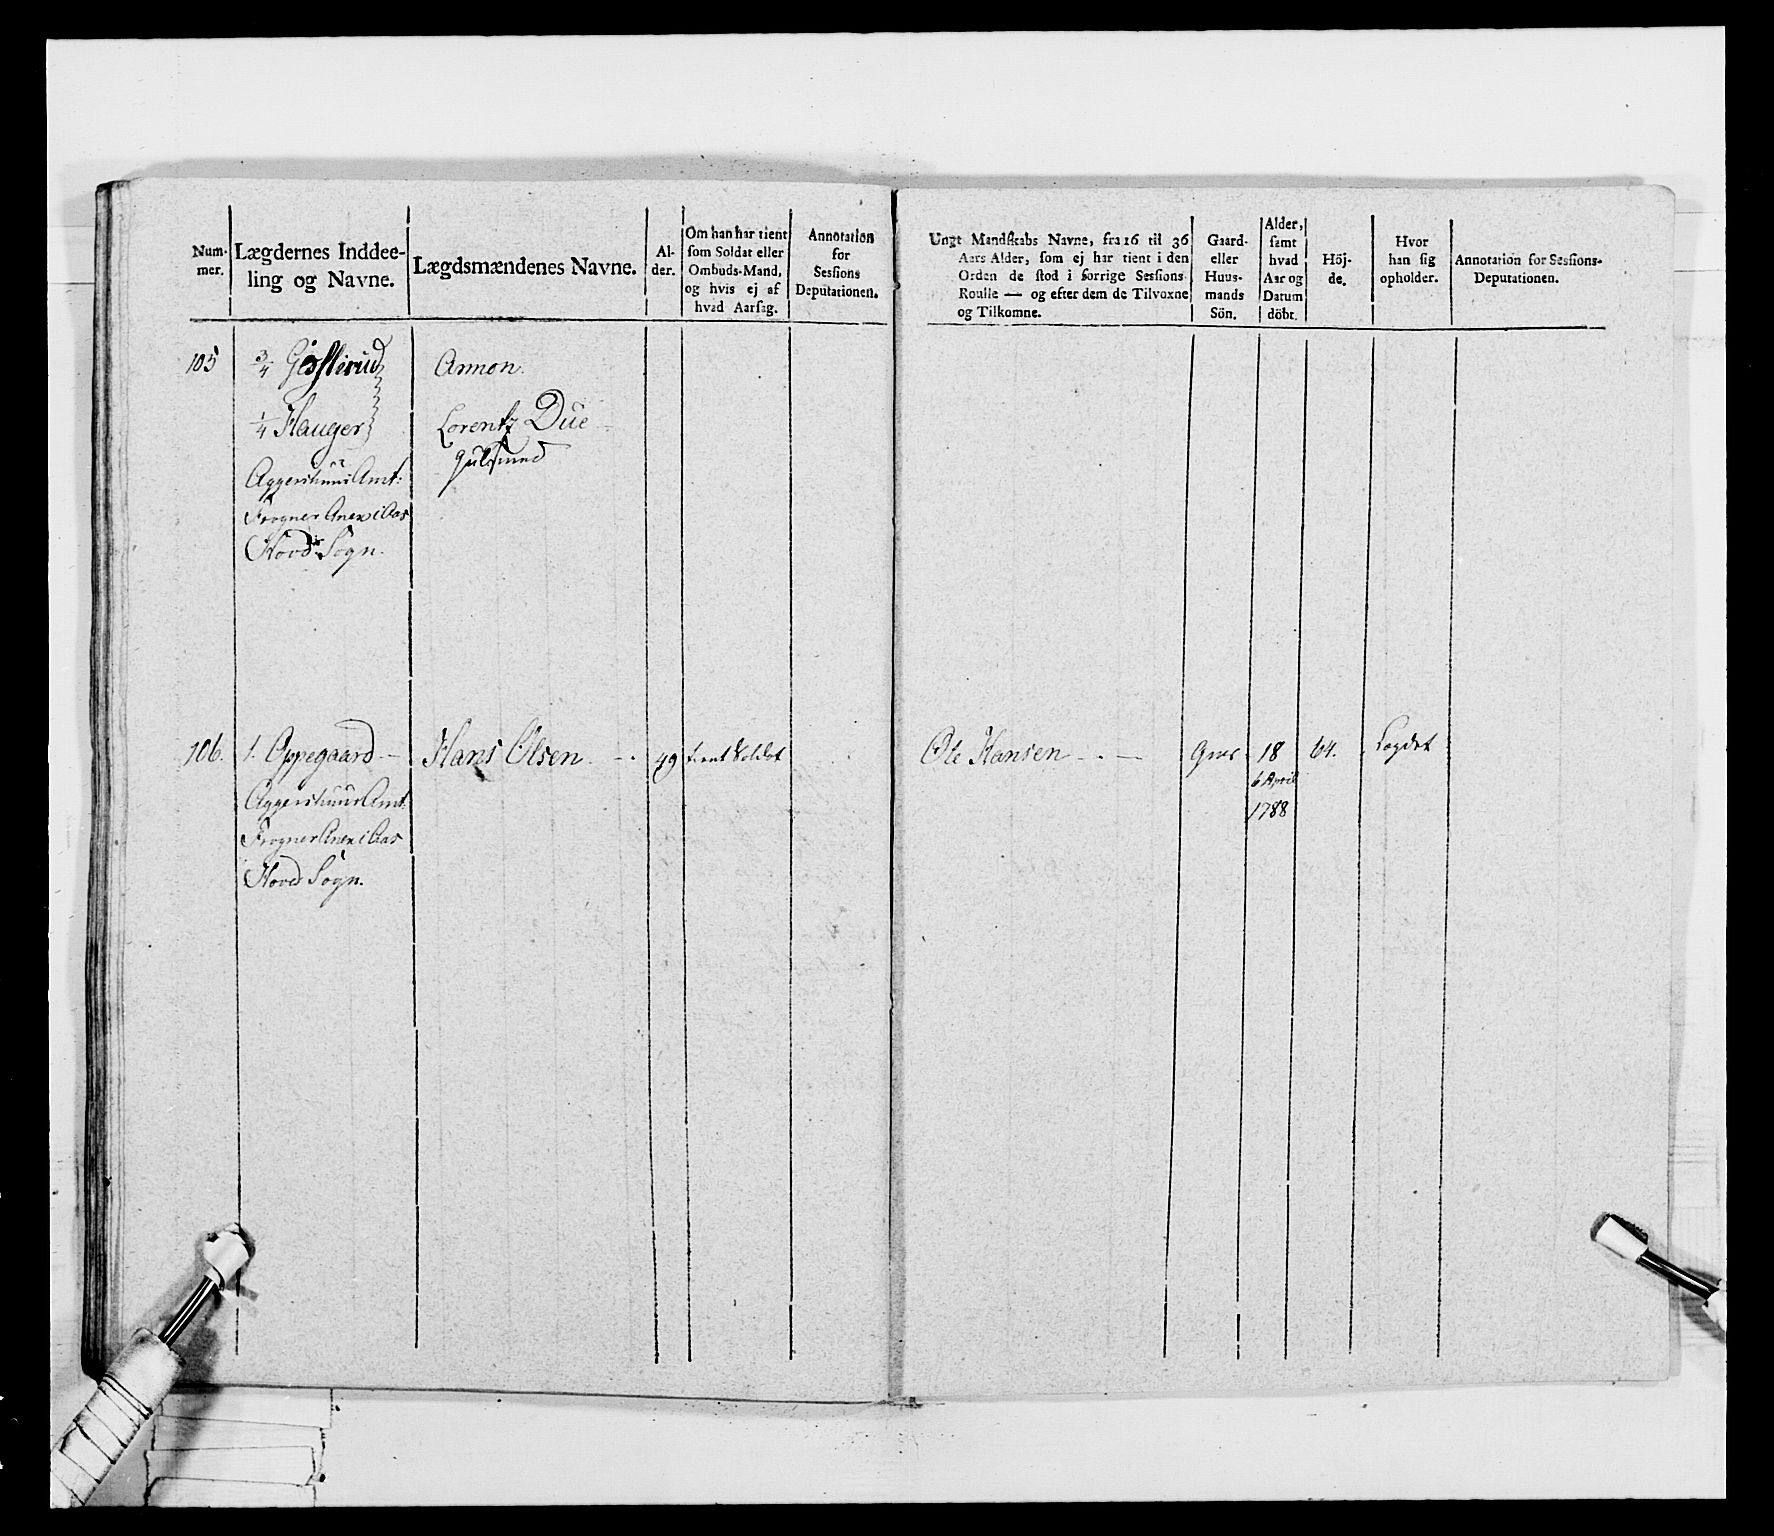 Num-
mer.
Lægdernes Inddee-
ling og Navne.
Lægdsmændenes Navne.
Al-
der.
Om han har tient
som Soldat eller
Ombuds-Mand,
og hvis ej af
hvad Aarsag.
Annotation
for
Sessions
Deputationen.
Ungt Mandskabs Navne, fra 16 til 36
Aars Alder, som ej har tient i den
Orden de stod i forrige Sessions-
Roulle — og efter dem de Tilvoxne
og Tilkomne.
Gaard-
eller
Huus-
mands
Sön.
Alder,
samt
hvad
Aar og
Datum
döbt.
Höj-
de.
Hvor
han sig
opholder.
Annotation for Sessions-
Deputationen.
105 3/4 Annon.
1/4 Hauger Lorentz Due
Aggershuus Amt:
Frogner Anex i Aas
Hovd Sogn.
106. 1. Oppegaard — Hans Olsen. 49 tient Soldat
Aggershuus Amt.
Frogner Anex i Aas
Hoved Sogn.
Ole Hansen — Gms 18 64. Lægdet
6 April
1788